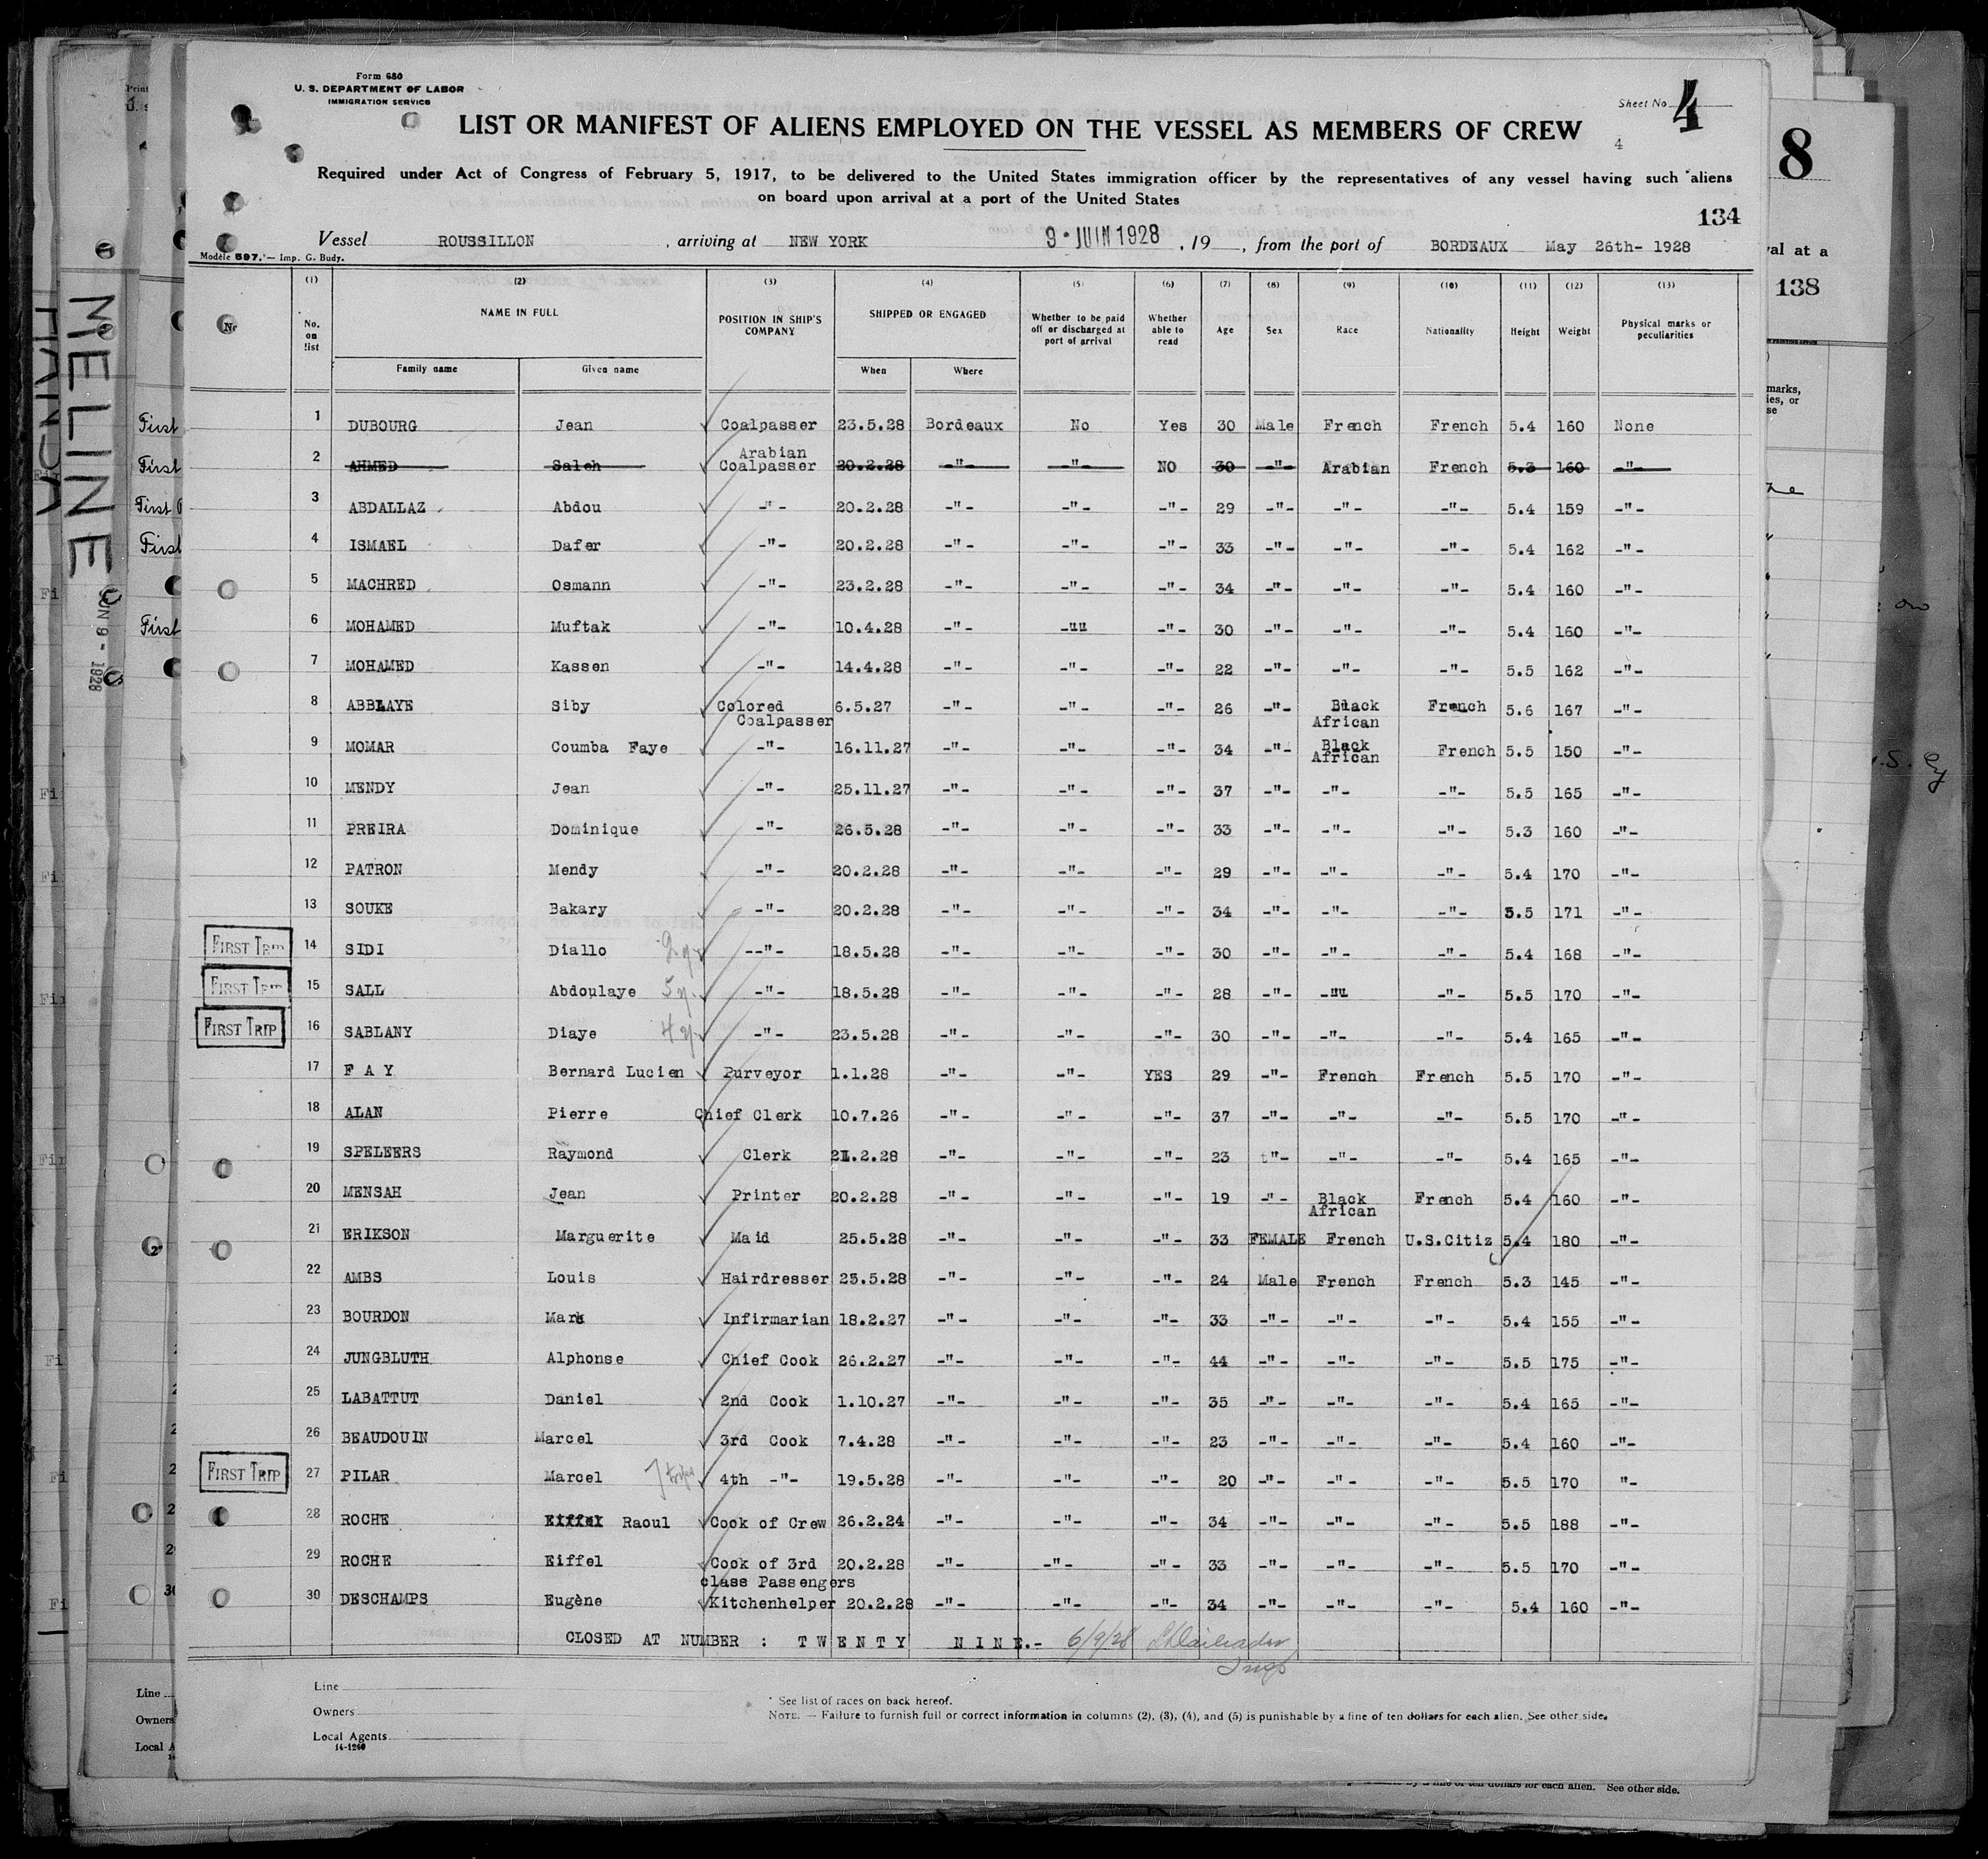 Form 680
U. S. DEPARTMENT OF LABOR
IMMIGRATION SERVICE
Sheet No. 4
LIST OR MANIFEST OF ALIENS EMPLOYED ON THE VESSEL AS MEMBERS OF CREW
4
Required under Act of Congress of February 5, 1917, to be delivered to the United States immigration officer by the representatives of any vessel having such aliens
on board upon arrival at a port of the United States
134
Vessel ROUSSILLON , arriving at NEW YORK 9 · JUIN 1928 , 19 , from the port of BORDEAUX May 26th- 1928
Modèle 597. — Imp. G. Budy.
(1) (2) (3) (4) (5) (6) (7) (8) (9) (10) (11) (12) (13)
Nr No. on list NAME IN FULL POSITION IN SHIP'S COMPANY SHIPPED OR ENGAGED Whether to be paid off or discharged at port of arrival Whether able to read Age Sex Race Nationality Height Weight Physical marks or peculiarities
Family name Given name When Where
1 DUBOURG Jean Coalpasser 23.5.28 Bordeaux No Yes 30 Male French French 5.4 160 None
2 AHMED Saleh Arabian Coalpasser 20.2.28 -"- -"- NO 30 -"- Arabian French 5.3 160 -"-
3 ABDALLAZ Abdou -"- 20.2.28 -"- -"- -"- 29 -"- -"- -"- 5.4 159 -"-
4 ISMAEL Dafer -"- 20.2.28 -"- -"- -"- 33 -"- -"- -"- 5.4 162 -"-
5 MACHRED Osmann -"- 23.2.28 -"- -"- -"- 34 -"- -"- -"- 5.4 160 -"-
6 MOHAMED Muftak -"- 10.4.28 -"- -"" -"- 30 -"- -"- -"- 5.4 160 -"-
7 MOHAMED Kassen -"- 14.4.28 -"- -"- -"- 22 -"- -"- -"- 5.5 162 -"-
8 ABBLAYE Siby Colored Coalpasser 6.5.27 -"- -"- -"- 26 -"- Black African French 5.6 167 -"-
9 MOMAR Coumba Faye -"- 16.11.27 -"- -"- -"- 34 -"- Black African French 5.5 150 -"-
10 MENDY Jean -"- 25.11.27 -"- -"- -"- 37 -"- -"- -"- 5.5 165 -"-
11 PREIRA Dominique -"- 26.5.28 -"- -"- -"- 33 -"- -"- -"- 5.3 160 -"-
12 PATRON Mendy -"- 20.2.28 -"- -"- -"- 29 -"- -"- -"- 5.4 170 -"-
13 SOUKE Bakary -"- 20.2.28 -"- -"- -"- 34 -"- -"- -"- 5.5 171 -"-
FIRST TRIP 14 SIDI Diallo 2 y. --"- 18.5.28 -"- -"- -"- 30 -"- -"- -"- 5.4 168 -"-
FIRST TRIP 15 SALL Abdoulaye 5 y. -"- 18.5.28 -"- -"- -"- 28 -"- -"" -"- 5.5 170 -"-
FIRST TRIP 16 SABLANY Diaye 4 y. -"- 23.5.28 -"- -"- -"- 30 -"- -"- -"- 5.4 165 -"-
17 F A Y Bernard Lucien Purveyor 1.1.28 -"- -"- YES 29 -"- French French 5.5 170 -"-
18 ALAN Pierre Chief Clerk 10.7.26 -"- -"- -"- 37 -"- -"- -"- 5.5 170 -"-
19 SPELEERS Raymond Clerk 21.2.28 -"- -"- -"- 23 "- -"- -"- 5.4 165 -"-
20 MENSAH Jean Printer 20.2.28 -"- -"- -"- 19 -"- Black African French 5.4 160 -"-
21 ERIKSON Marguerite Maid 25.5.28 -"- -"- -"- 33 FEMALE French U.S.Citiz 5.4 180 -"-
22 AMBS Louis Hairdresser 25.5.28 -"- -"- -"- 24 Male French French 5.3 145 -"-
23 BOURDON Mark Infirmarian 18.2.27 -"- -"- -"- 33 -"- -"- -"- 5.4 155 -"-
24 JUNGBLUTH Alphonse Chief Cook 26.2.27 -"- -"- -"- 44 -"- -"- -"- 5.5 175 -"-
25 LABATTUT Daniel 2nd Cook 1.10.27 -"- -"- -"- 35 -"- -"- -"- 5.4 165 -"-
26 BEAUDOUIN Marcel 3rd Cook 7.4.28 -"- -"- -"- 23 -"- -"- -"- 5.4 160 -"-
FIRST TRIP 27 PILAR Marcel 7 trips 4th -"- 19.5.28 -"- -"- -"- 20 -"- -"- -"- 5.5 170 "-
28 ROCHE Eiffel Raoul Cook of Crew 26.2.24 -"- -"- -"- 34 -"- -"- -"- 5.5 188 -"-
29 ROCHE Eiffel Cook of 3rd class Passengers 20.2.28 -"- -"- -"- 33 -"- -"- -"- 5.5 170 -"-
30 DESCHAMPS Eugène Kitchenhelper 20.2.28 -"- -"- -"- 34 -"- -"- -"- 5.4 160 -"-
CLOSED AT NUMBER : T W E N T Y N I N E.- 6/9/28
Insp
Line
Owners
Local Agents
14-1240
* See list of races on back hereof.
NOTE. — Failure to furnish full or correct information in columns (2), (3), (4), and (5) is punishable by a fine of ten dollars for each alien. See other side.
MELINE
JUN 9 - 1928
First
First
First
First
First
Line
Owners
Local A
8
val at a
138
marks,
ies, or
se
for each alien. See other side.